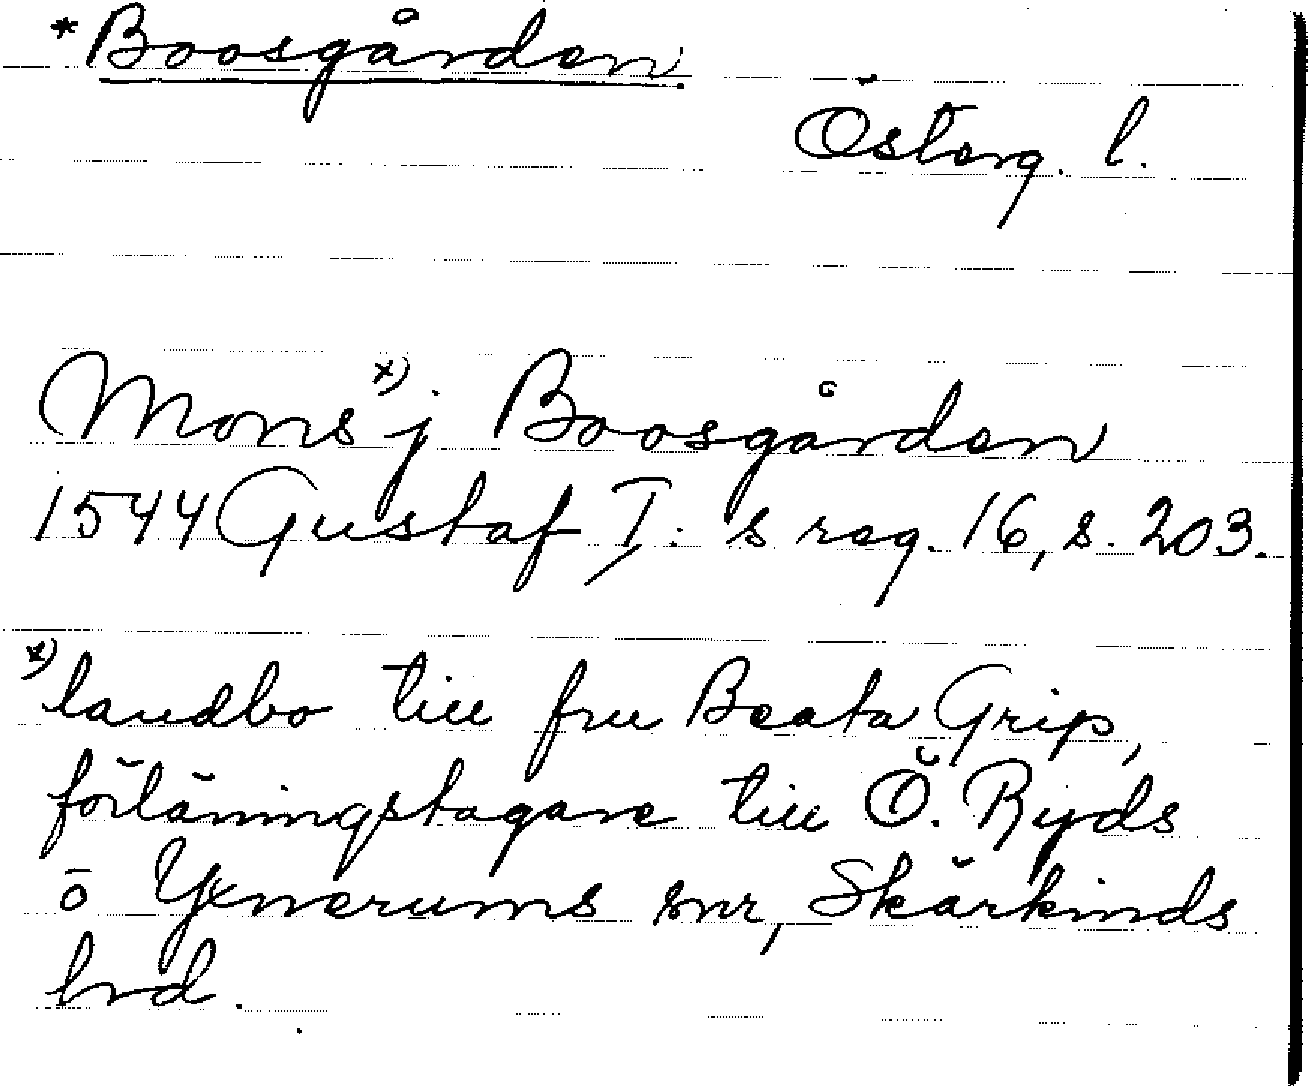 *Boosgården
Österg. l.
Mons x) j Boosgården
1544 Gustaf I: s reg. 16, s. 203.
x) landbo till fru Beata Grip,
förläningstagare till Ö. Ryds
o Yxnerums snr, Skärkinds
hrd.